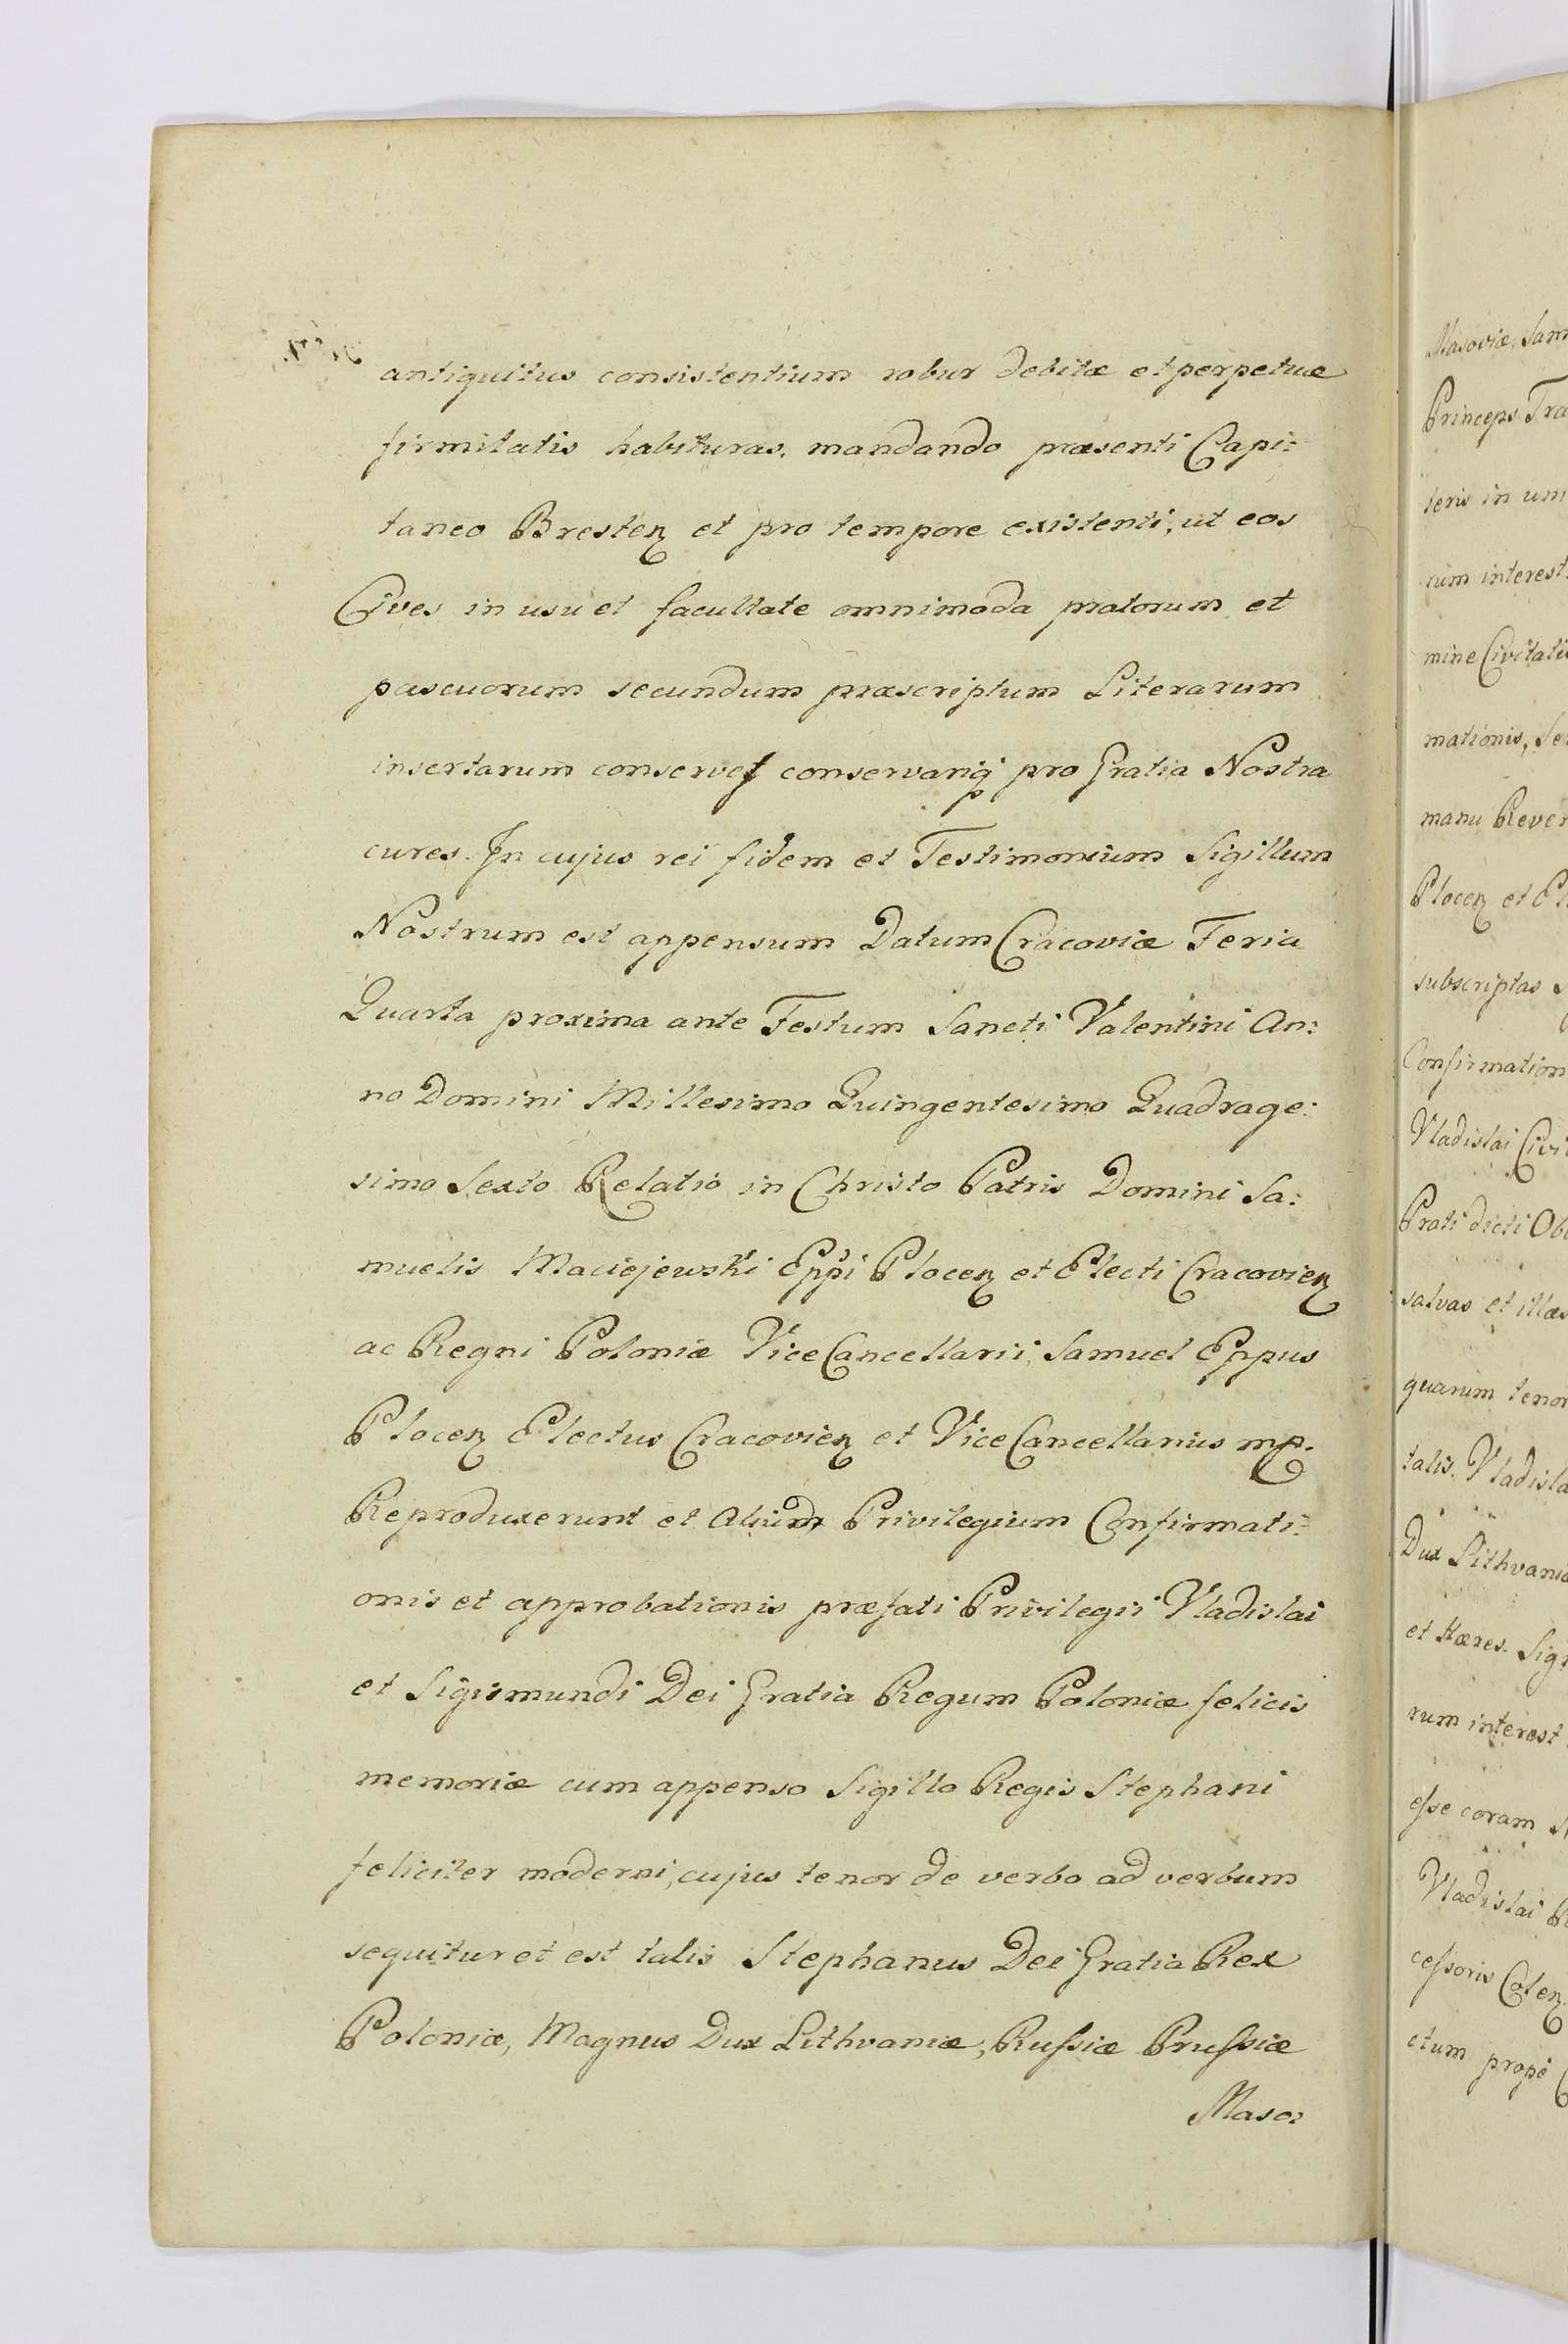 antiquitus consistentium robur debitæ et perpetuæ
firmitatis habituras, mandando præsenti Capi:
taneo Bresteɳ et pro tempore existenti, ut eos
Cives in usu et facultate omnimoda pratorum et
pascuorum secundum præscriptum Literarum
insertarum conservet conservariq pro Gratia Nostra
cures. In cujus rei fidem et Testimonium Sigillum
Nostrum est appensum Datum Cracoviæ Feria
Quarta proxima ante Festum Sancti Valentini An:
no Domini Millesimo Quingentesimo Quadrage:
simo Sexto Relatio in Christo Patris Domini Sa:
muelis Maciejewski Eppi Plocen et Electi Cracovien
ac Regni Poloniæ ViceCancellarii, Samuel Eppus
Plocen Electus Cracovien et ViceCancellarius mp.
Reproduxerunt et Aliud Privilegium Confirmati:
onis et approbationis præfati Privilegii Vladislai
et Sigismundi Dei Gratia Regum Poloniæ felicis
memoriæ cum appenso Sigillo Regis Stephani
feliciter moderni, cujus tenor de verbo ad verbum
sequitur et est talis Stephanus Dei Gratia Rex
Poloniæ, Magnus Dux Lithvaniæ, Russiæ Prussiæ
Maso:
Masoviæ, Sam
Princeps Tra
teris in um
rum interest
mine Civitatis
mationis, Se
manu Rever
Plocen et El
subscriptas
Confirmation
Vladislai Civi
Prati dicti Ob
salvas et illæs
quarum tenor
talis. Vladisla
Dux Lithvaniæ
et Hæres. Sig
rum interest
esse coram N
Vladislai R
cessoris Colen
ctum prope C